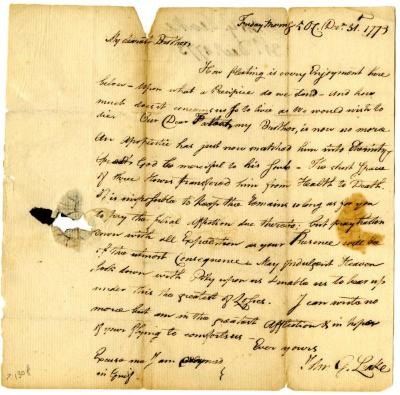 Friday Morng 5 OC Decr 31st 1773
My dearest Brother
How fleeting is every Enjoyment here
below - Upon what a Precipice do we stand - And how
much does it concern us so to live as We would wish to
die. Our Dear Father, my Brother, is now no more
An Apoplectic has just now snatched him into Eternity
God be merciful to his Soul - The short Space
of three Hours transferred him from Health to Death.
It is impossible to keep the Remains so long as for you
to pay the last Affection due thereto; but pray hasten
down with all Expedition as your Presence will be
of the utmost Consequence - May Indulgent Heaven
look down with Pity upon us & enable us to bear up
under this the greatest of Losses. I can write no
more but am in the greatest Affliction & in hopes
of your flying to comfort us -
Ever yours
Excuse me I am
in Grief
John G. Leake